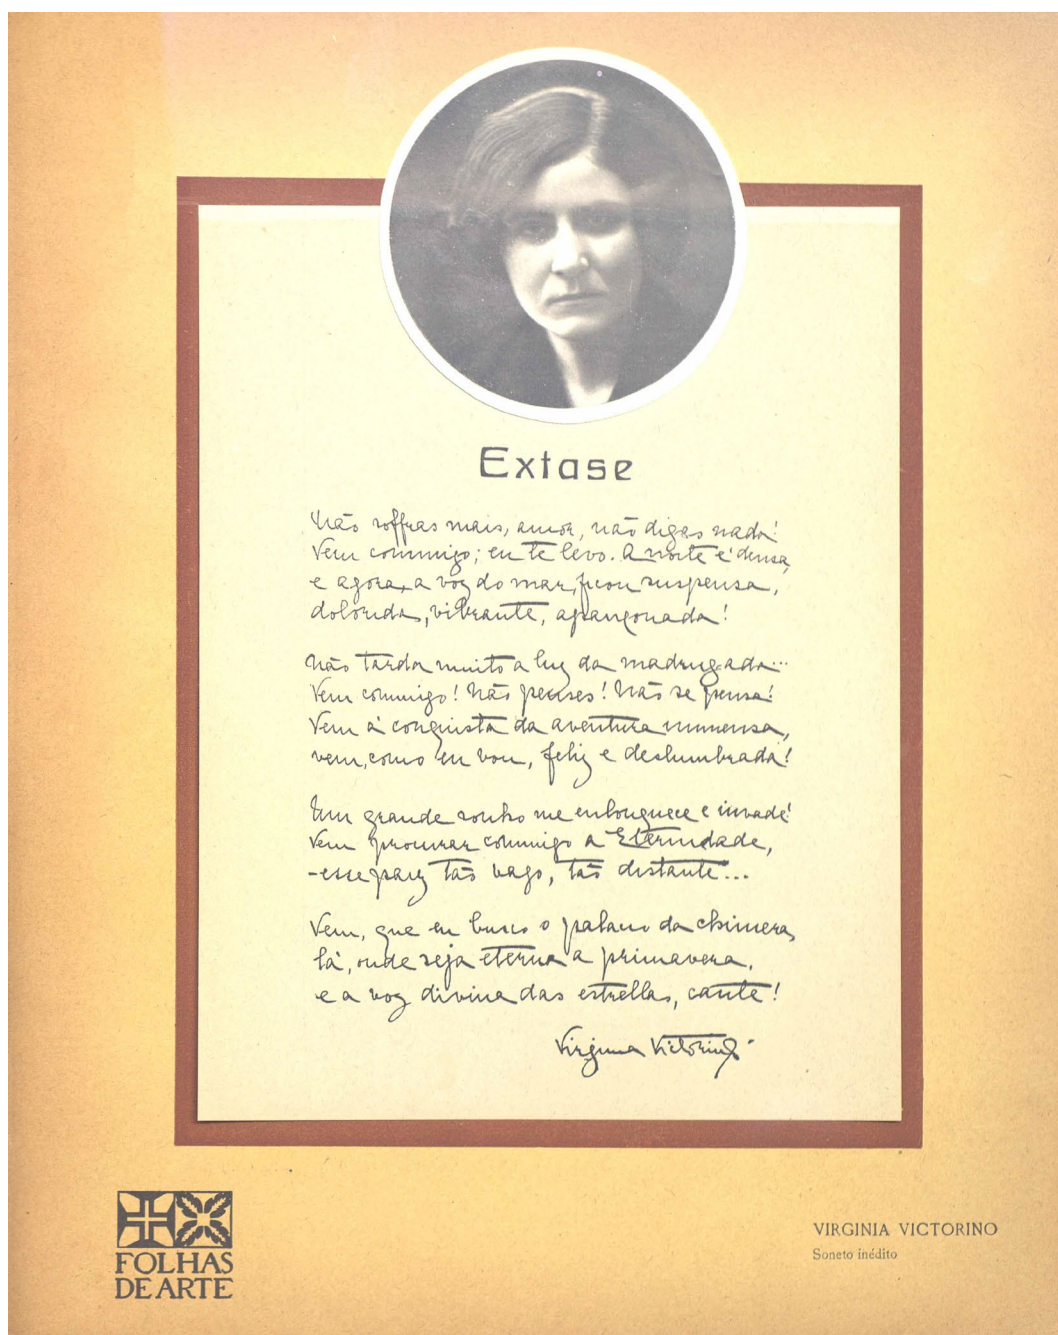 Extase
Não soffras mais, amor, não digas nada!
Vem commigo; eu te levo. A noite é densa,
e agora, a voz do mar, ficou suspensa,
dolorida, vibrante, apaixonada!
Não tarda muito a luz da madrugada...
Vem commigo! Não penses! Não se pensa!
Vem á conquista da aventura immensa,
vem, como eu vou, feliz e deslumbrada!
Um grande sonho me enlouquece e invade!
Vem procurar commigo a Eternidade,
-esse paiz tão vago, tão distante...
Vem, que eu busco o palacio da chimera,
lá, onde seja eterna a primavera,
e a voz divina das estrellas, cante!
Virginia Victorino
FOLHAS
DE ARTE
VIRGINIA VICTORINO
Soneto inédito